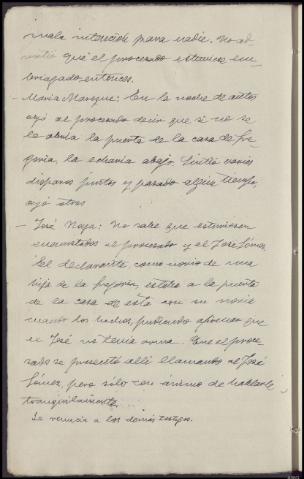 mala intención para nadie. No ad-
mitió que el procesado estuviese em-
briagado entonces.
- María Marque: En la noche de autos
oyó al procesado decir que si no se
le abría la puerta de la casa de
la echaría abajo. Sintió varios
disparos juntos y pasado algún tiempo,
oyó otros
- José Naya: No sabe que estuviesen
enemistados el procesado y el José Gómez
El declarante, como novio de una
hija de la estaba a la puerta
de la casa de esta con su novia
cuando los hechos, pudiendo afirmar que
el José no tenía arma. Que el proce-
sado se presentó allí llamando al José
Gómez, pero sólo con ánimo de hablarle
tranquilamente.
Se renuncia a los demás testigos.